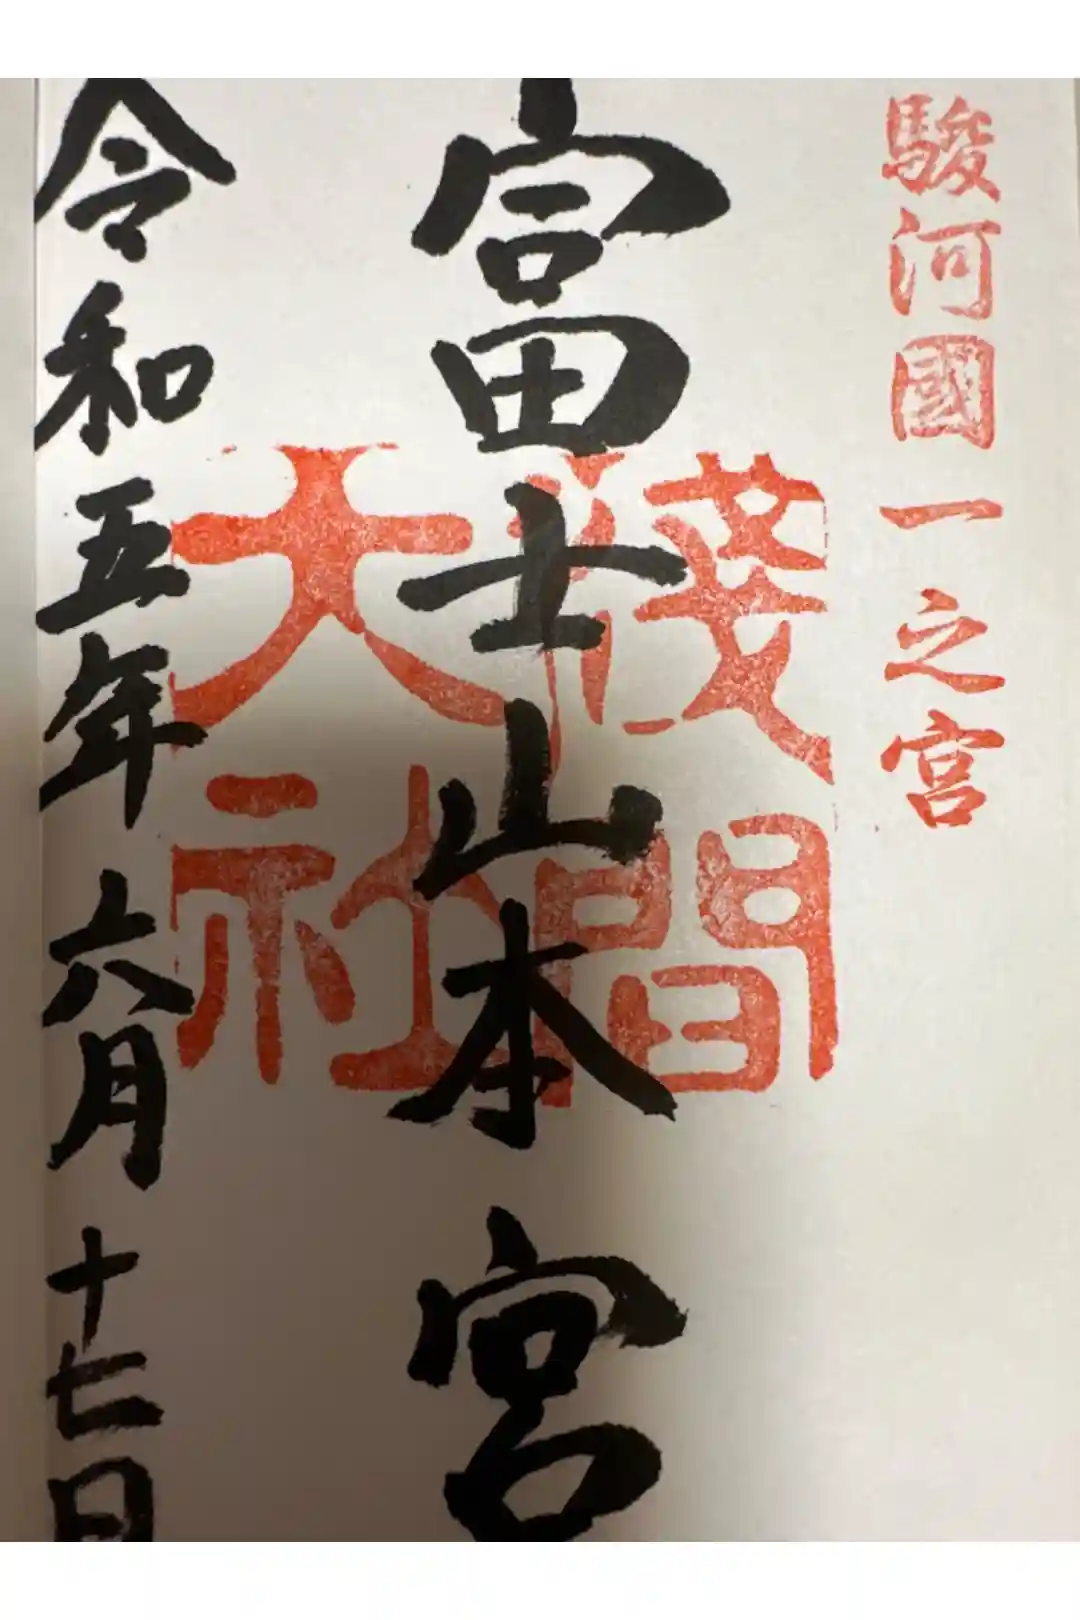 駿河國一之宮
富士山本宮
淺間
大社
令和五年六月十七日